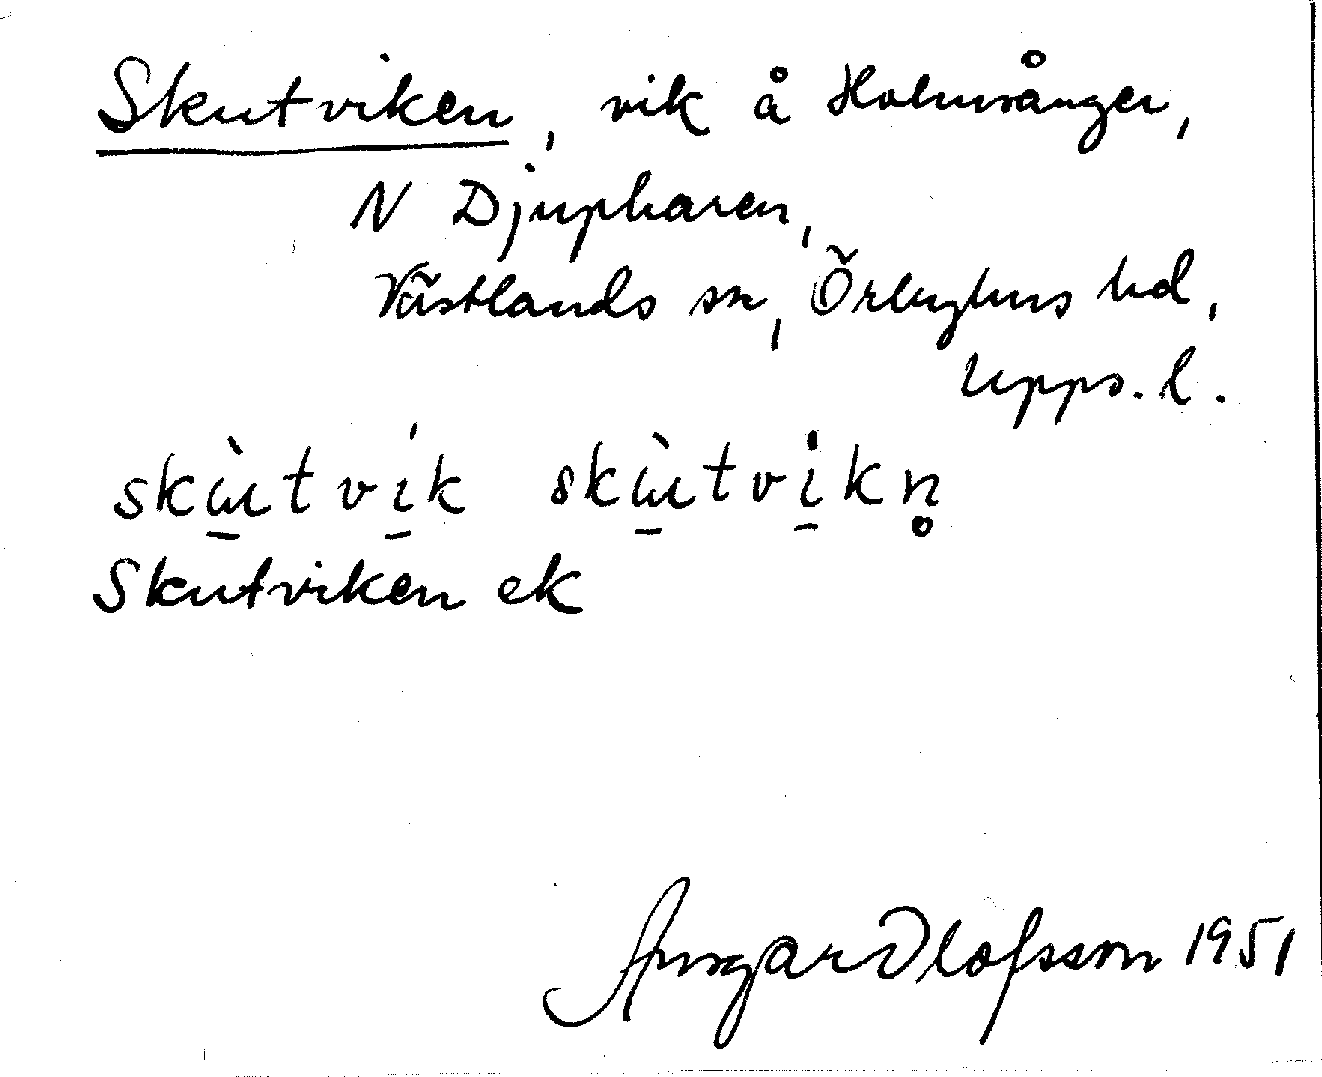 Skutviken, vik å Holmsånger,
N Djupharen,
Västlands sn, Örbyhus hd,
Upps. l.
skùtvik skùtvikn̥
Skutviken ek
Ansgar Olofsson 1951